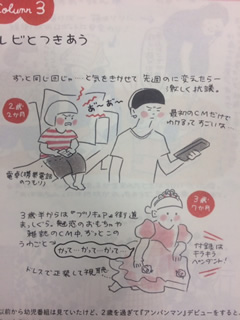 Column 3
レビとつきあう
ずっと同じ回じゃ…と気をきかせて先週のに変えたら…
激しく抗議。
2歳2か月
あ゛〜あ゛〜
最初のCMだけで
わかるってすごいな…
電卓(携帯電話
のつもり)
3歳半からは「プリキュア」ばく進
まっしぐら。魅惑のおもちゃや
雑誌のCM中、ずっとこの
うわごと
かって…かって…かって…
3歳7か月
付録は
キラキラ
ペンダント!
ドレスで正装して視聴
以前から幼児番組は見ていたけど、2歳を過ぎて『アンパンマン』デビューをすると、